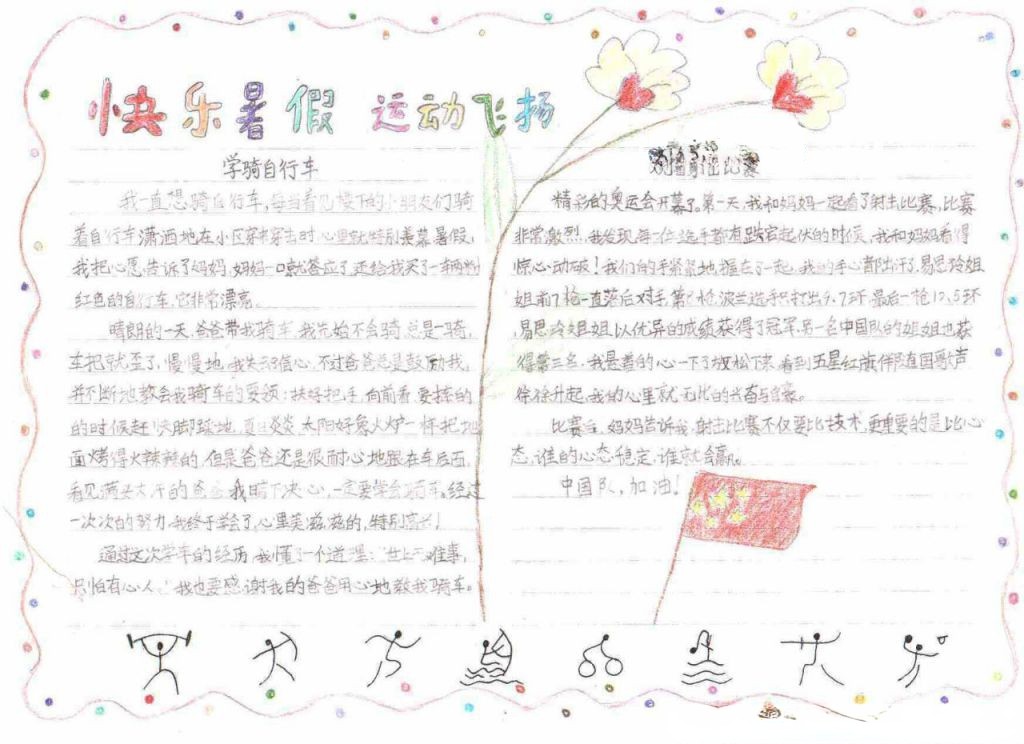 快乐暑假 运动飞扬
学骑自行车
我一直想骑自行车,每当看见楼下的小朋友们骑
着自行车潇洒地在小区穿来穿去时心里就特别羡慕。暑假,
我把心愿告诉了妈妈,妈妈一口就答应了,还给我买了一辆粉
红色的自行车,它非常漂亮。
晴朗的一天,爸爸带我骑车,我先始不会骑,总是一骑,
车把就歪了,慢慢地,我失去了信心,不过爸爸总是鼓励我,
并不断地教会我骑车的要领:扶好把手,向前看,要摔的
的时候赶快脚踩地,夏日炎炎,太阳好象火炉一样把地
面烤得火辣辣的,但是爸爸还是很耐心地跟在车后面,
看见满头大汗的爸爸,我暗下决心,一定要学会骑车。经过
一次次的努力,我终于学会了,心里美滋滋的,特别高兴!
通过这次学车的经历,我懂了一个道理:“世上无难事,
只怕有心人。”我也要感谢我的爸爸用心地教我骑车。
比赛
精彩的奥运会开幕了。第一天,我和妈妈一起看了射击比赛,比赛
非常激烈,我发现每一位选手都有跌宕起伏的时候,我和妈妈看得
惊心动破!我们的手紧紧地握在了一起,我的手心都出汗了,易思玲姐
姐前7枪一直落后对手,第 枪,波兰选手只打出9.7环,最后一枪10.5环,
易思玲姐姐以优异的成绩获得了冠军,另一名中国队的姐姐也获
得第三名,我悬着的心一下子放松下来,看到五星红旗伴随国歌声
徐徐升起,我的心里就无比的兴奋与自豪。
比赛后,妈妈告诉我,射击比赛不仅要比技术,更重要的是比心
态,谁的心态稳定,谁就会赢。
中国队,加油!